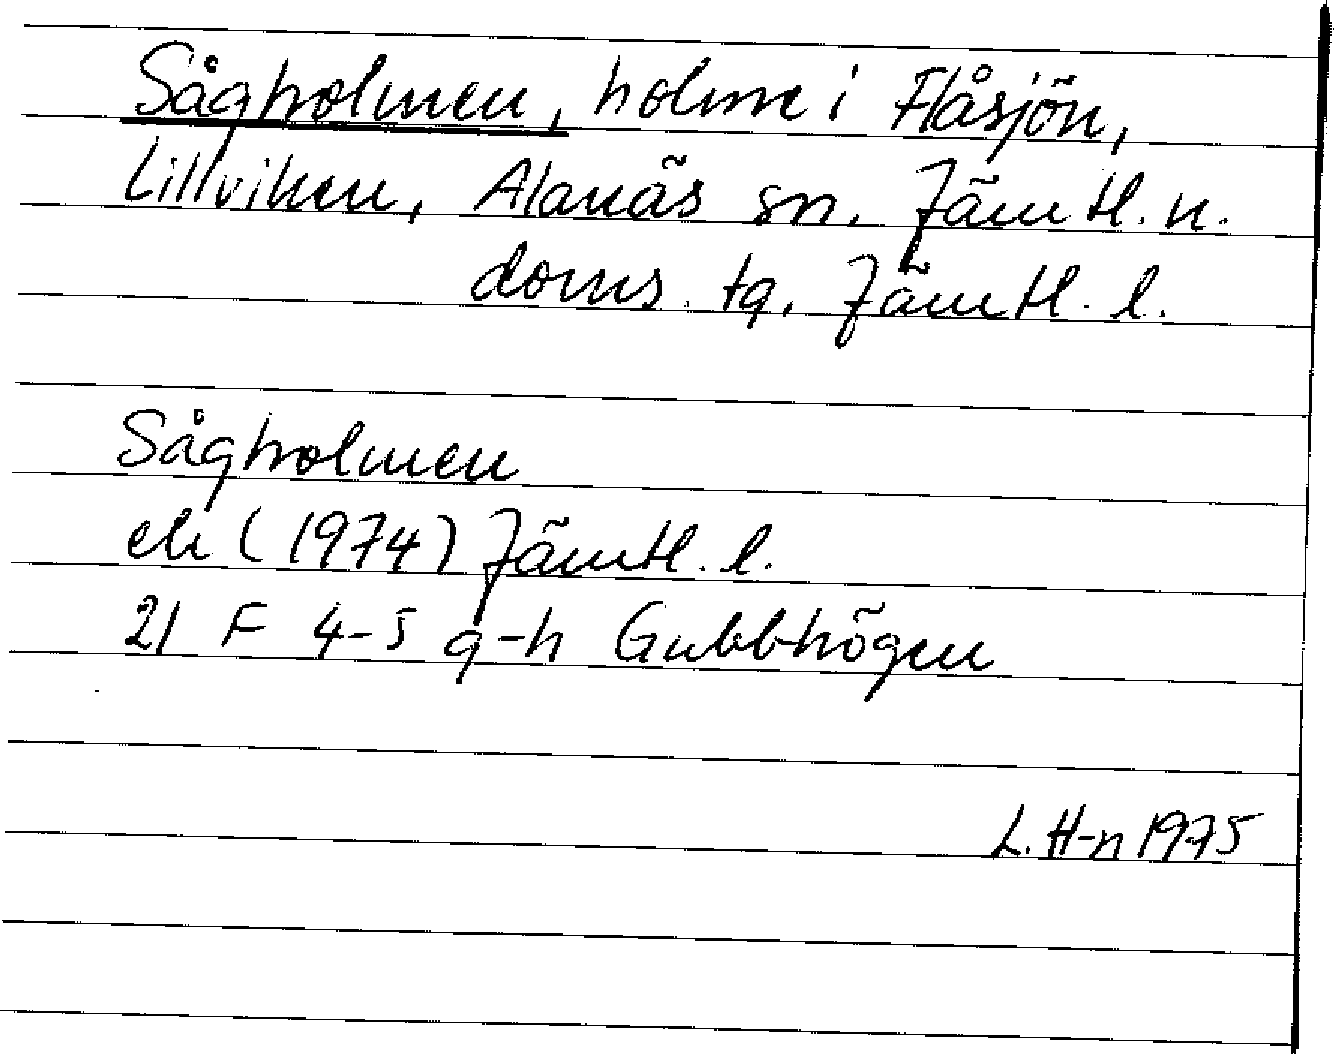 Sågholmen, holme i Flåsjön,
Lillviken, Alanäs sn. Jämtl. n.
doms. tg, Jämtl. l.
Sågholmen
ek (1974) Jämtl. l.
21 F 4-5 g-h Gubbhögen
L. H-n 1975